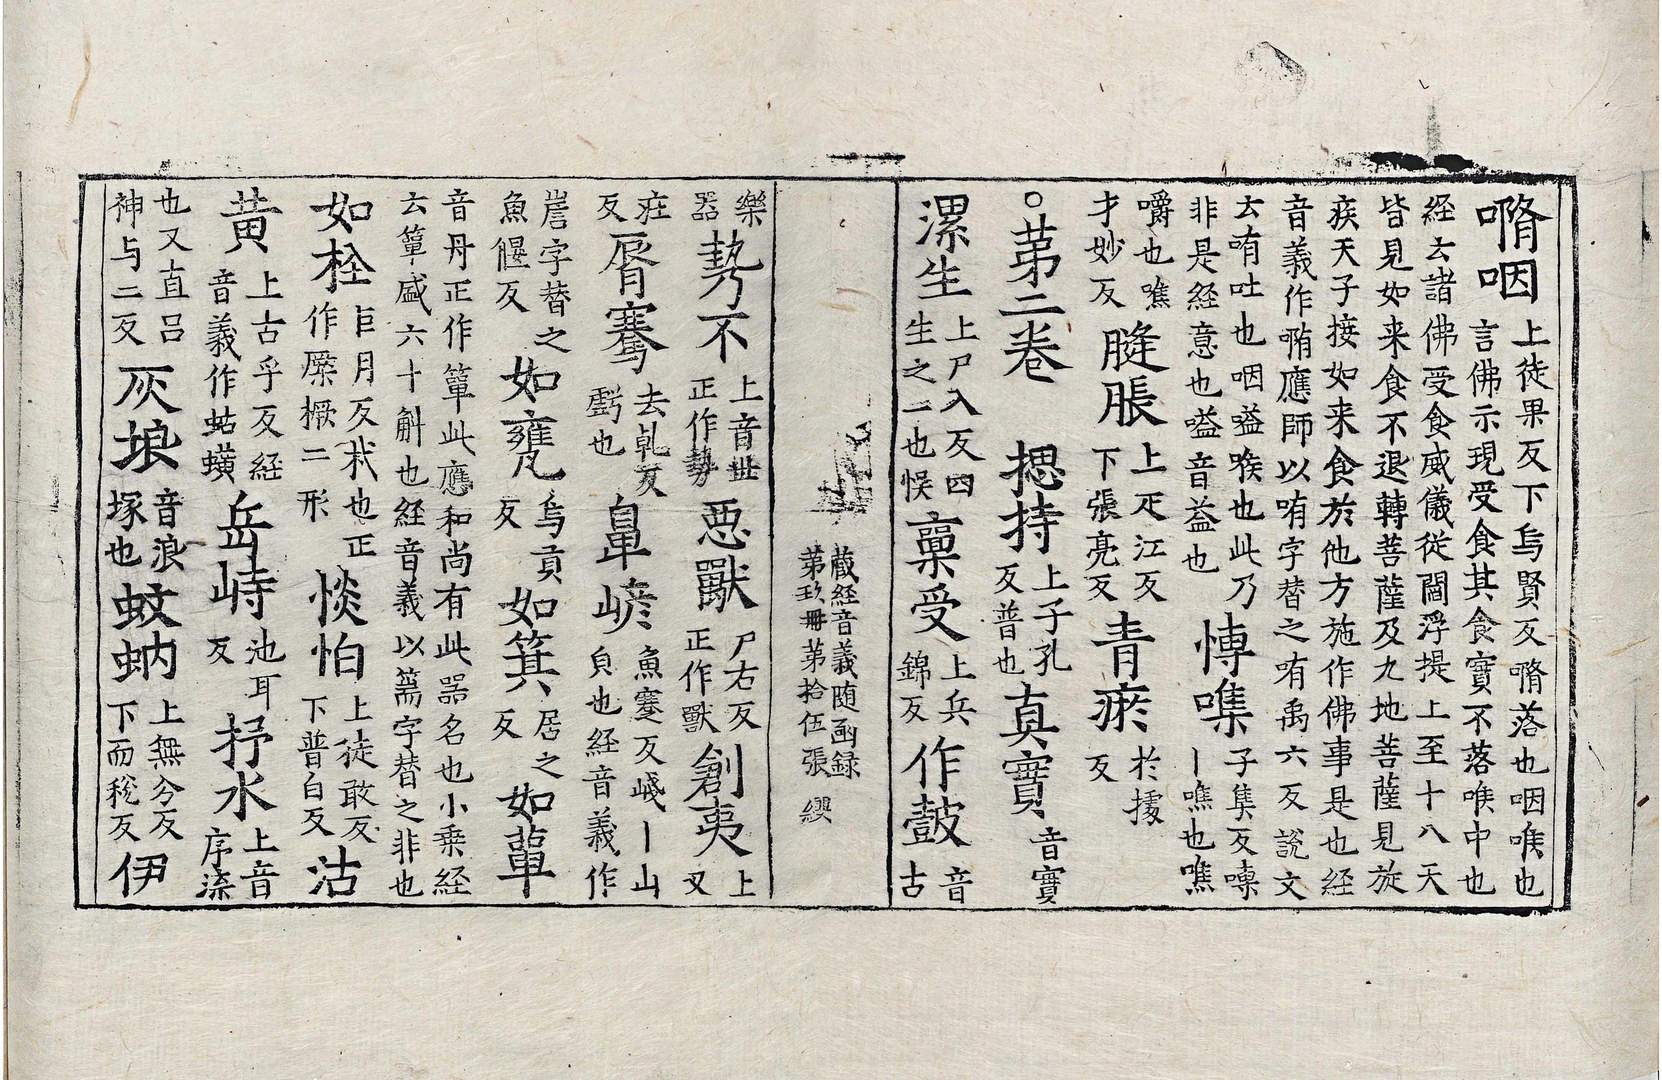 咽 上徒果反下烏賢反落也咽喉也
言佛示現受食其食實不落喉中也
経云諸佛受食威儀從閻浮提上至十八天
皆見如来食不退轉菩薩及九地菩薩見旋
疾天子接如来食於他方施作佛事是也経
音義作應師以哊字替之哊禹六反說文
云哊吐也咽嗌喉也此乃
非是経意也嗌音益也
愽㗱 子集反㗱
丨噍也噍
嚼也噍
才妙反
膖脹 上疋江反
下張亮反
青瘀 於據
反
○苐二卷
揔持 上子孔
反普也
真實 音實
漯生 上尸入反四
生之一也悮
稟受 上兵
錦反
作鼓 音
古
藏経音義随函録
第玖冊第拾伍張 纓
樂
器
㔟不 上音世
正作勢
惡獸 尸右反
正作獸
創夷 上
又
疰
反
脣騫 去乹反
虧也
阜嵃 魚蹇反嶘丨山
皃也経音義作
嵓字替之
魚偃反
如甕 烏貢
反
如箕 居之
反
如簞
音丹正作簞此應和尚有此器名也小乗経
云簞盛六十斛也経音義以篅字替之非也
如栓 巨月反杙也正
作橜橛二形
惔怕 上徒敢反
下普白反
沽
黄 上古乎反経
音義作蛄蟥
岳峙 池耳
反
抒水 上音
序㳅
也又直吕
神与二反
灰埌 音浪
塚也
蚊蚋 上無分反
下而稅反
伊